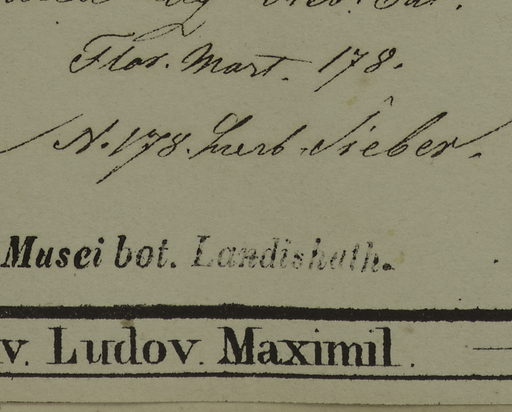 Flor. Mart. 178.
N. 178. herb. Sieber.
Musei bot. Landishuth.
v. Ludov. Maximil.